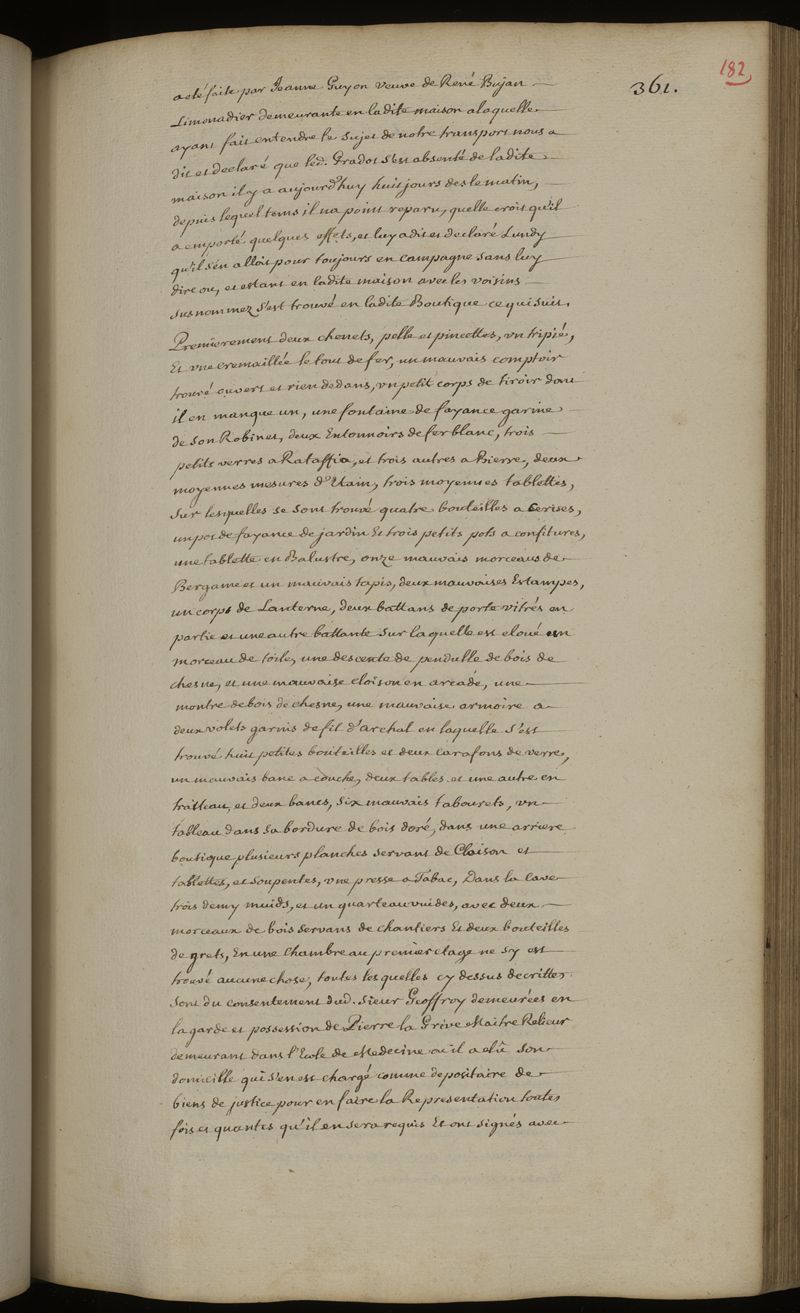 182
361.
a eté faite par Jeanne Guyon veuve de René Bujan
Limonadier demeurante en ladite maison a laquelle
ayant fait entendre le sujet de notre transport nous a
dit et declaré que led. Gradot s'est absenté de ladite
maison il y a aujourd'huy huit jours des le matin,
depuis lequel tems il na point reparu, quelle croit qu'il
a emporté quelques effets, et luy a dit et declaré Lundy
qu'il s'en alloit pour toujours en Campagne sans luy
dire ou, et estant en ladite maison avec les voisins
susnommez s'est trouvé en ladite Boutique ce qui suit.
Premierement deux chenets, pelle et pincettes, un tripié,
Et une cremaillée le tout de fer, un mauvais comptoir
trouvé ouvert et rien dedans, un petit corps de tiroir dont
il en manque un, une fontaine de fayance garnie
de son Robinet, deux Entonnoirs de fer blanc, trois
petits verres a Rataffia, et trois autres a Bierre, deux
moyennes mesures d'Etain, trois moyennes tablettes,
sur lesquelles se sont trouvé quatre bouteilles a Cerises,
un pot de fayance de jardin Et trois petits pots a confitures,
une tablette en Balustre, onze mauvais morceaus de
Bergame et un mauvais tapis, deux mauvaises Estampes,
un corps de Lanterne, deux battans de porte vitrés en
partie et une autre battante sur laquelle est cloué un
morceau de toile, une descente de pendulle de bois de
chesne, et une mauvaise cloison en arcade, une
montre de bois de chesne, une mauvaise armoire a
deux volets garnis de fil d'archal en laquelle s'est
trouvé huit petites bouteilles et deux Carafons de verre,
un mauvais banc a couche, deux tables et une autre en
tratteau, et deux bancs, six mauvais tabourets, un
tableau dans sa bordure de bois doré, dans une arriere
boutique plusieurs planches servant de Cloison et
tablettes, et soupentes, une presse a Tabac, Dans la Cave
trois demy muids, et un quarteau vuides, avec deux
morceaux de bois servans de chantiers Et deux bouteilles
de grets, En une Chambre au premier etage ne s'y est
trouvé aucune chose, toutes lesquelles cy dessus decrittes
sont du consentement dud. sieur Geoffroy demeurées en
la garde et possession de Pierre la Grève Maitre Relieur
demeurant dans l'Ecole de Medecine ou il a elû son
domicille qui s'en est chargé comme depositaire de
biens de justice pour en faire la Representation toutes
fois et quantes qu'il en sera requis Et ont signés avec